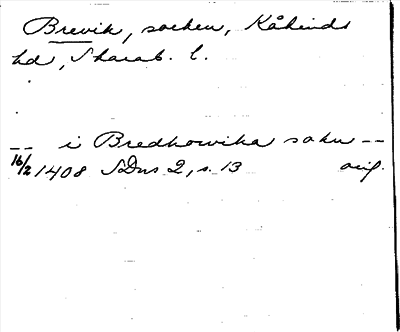 Brevik, socken, Kåkinds
hd, Skarab. l.
-- i Bredhowika sokn --
16/2 1408 SDns 2, s. 13 orig.